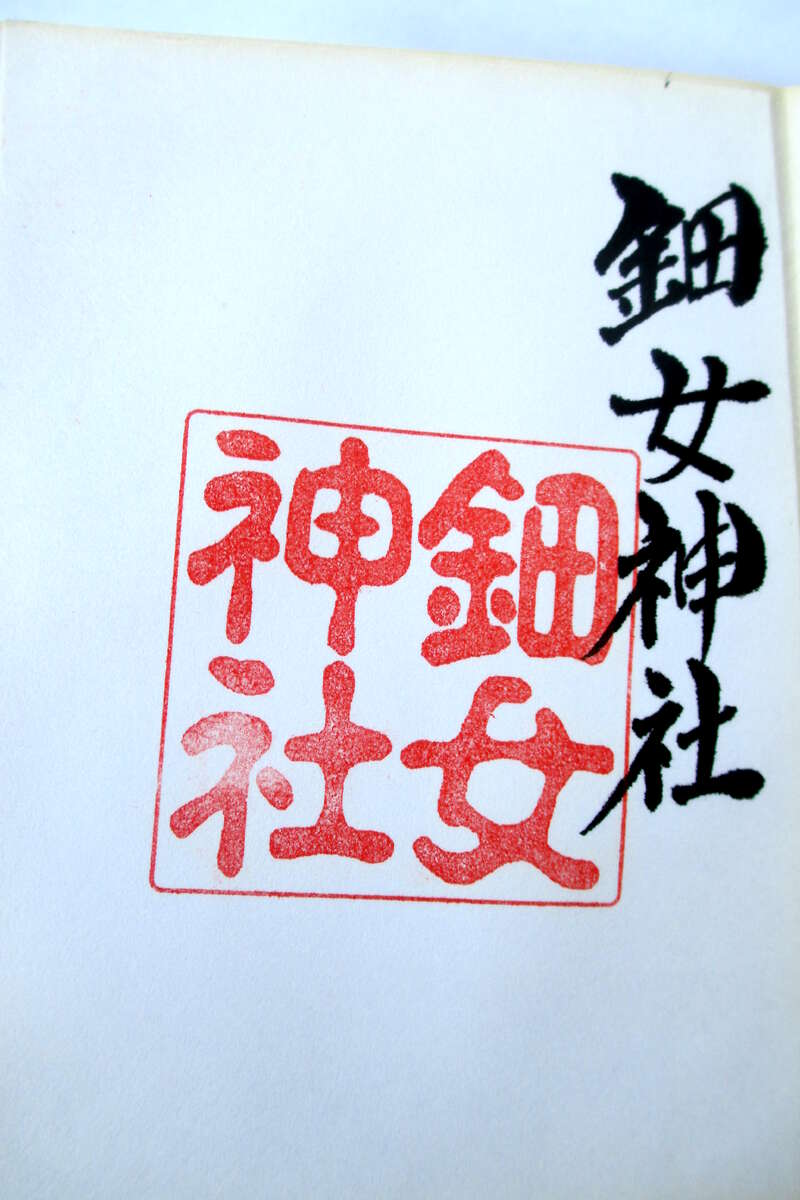 鈿女神社
鈿女
神社